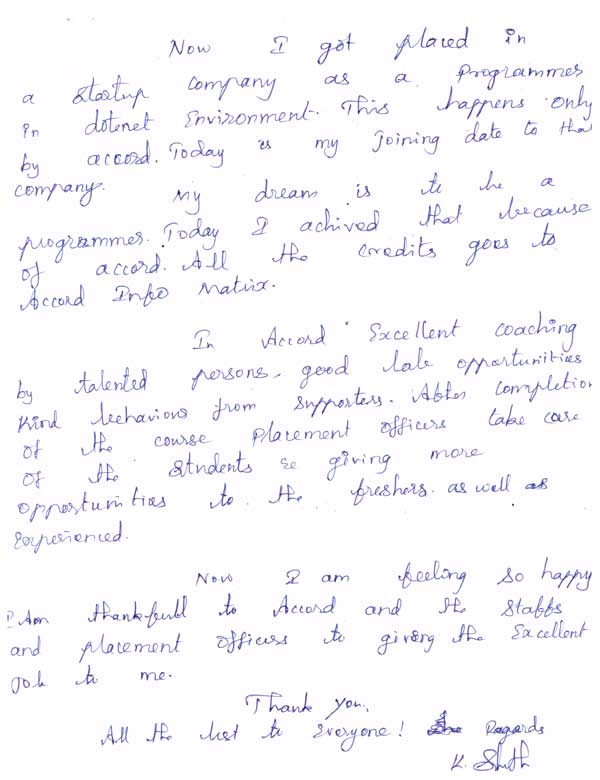 Now I got placed in
a startup company as a Programmer
in dotenet Environment. This happens only
by accord. Today is my Joining date to that
company.
My dream is to be a
programmer. Today I achived that because
of accord. All the credits goes to
Accord Info Matrix.
In Accord Excellent coaching
by talented persons, good lab opportunities
Kind behaviour from supporters. After completion
of the course Placement officers take care
of the students & giving more
opportunities to the freshers. as well as
Experienced.
Now I am feeling so happy
I Am thankfull to Accord and the Staffs
and placement officers to giving the Excellent
Job to me.
Thank you.
All the best to Everyone! Regards
K.